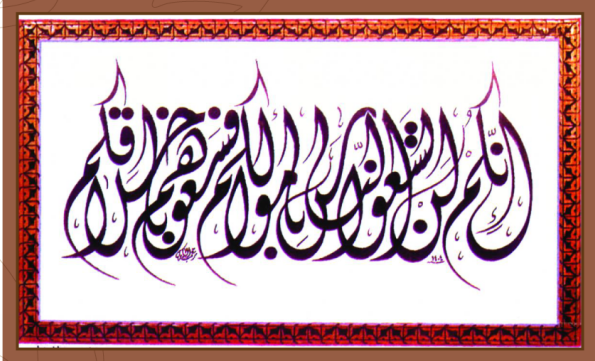 إِنَّكم لن تسعوا النّاس بأموالكم فسعوهم بأخلاقكم